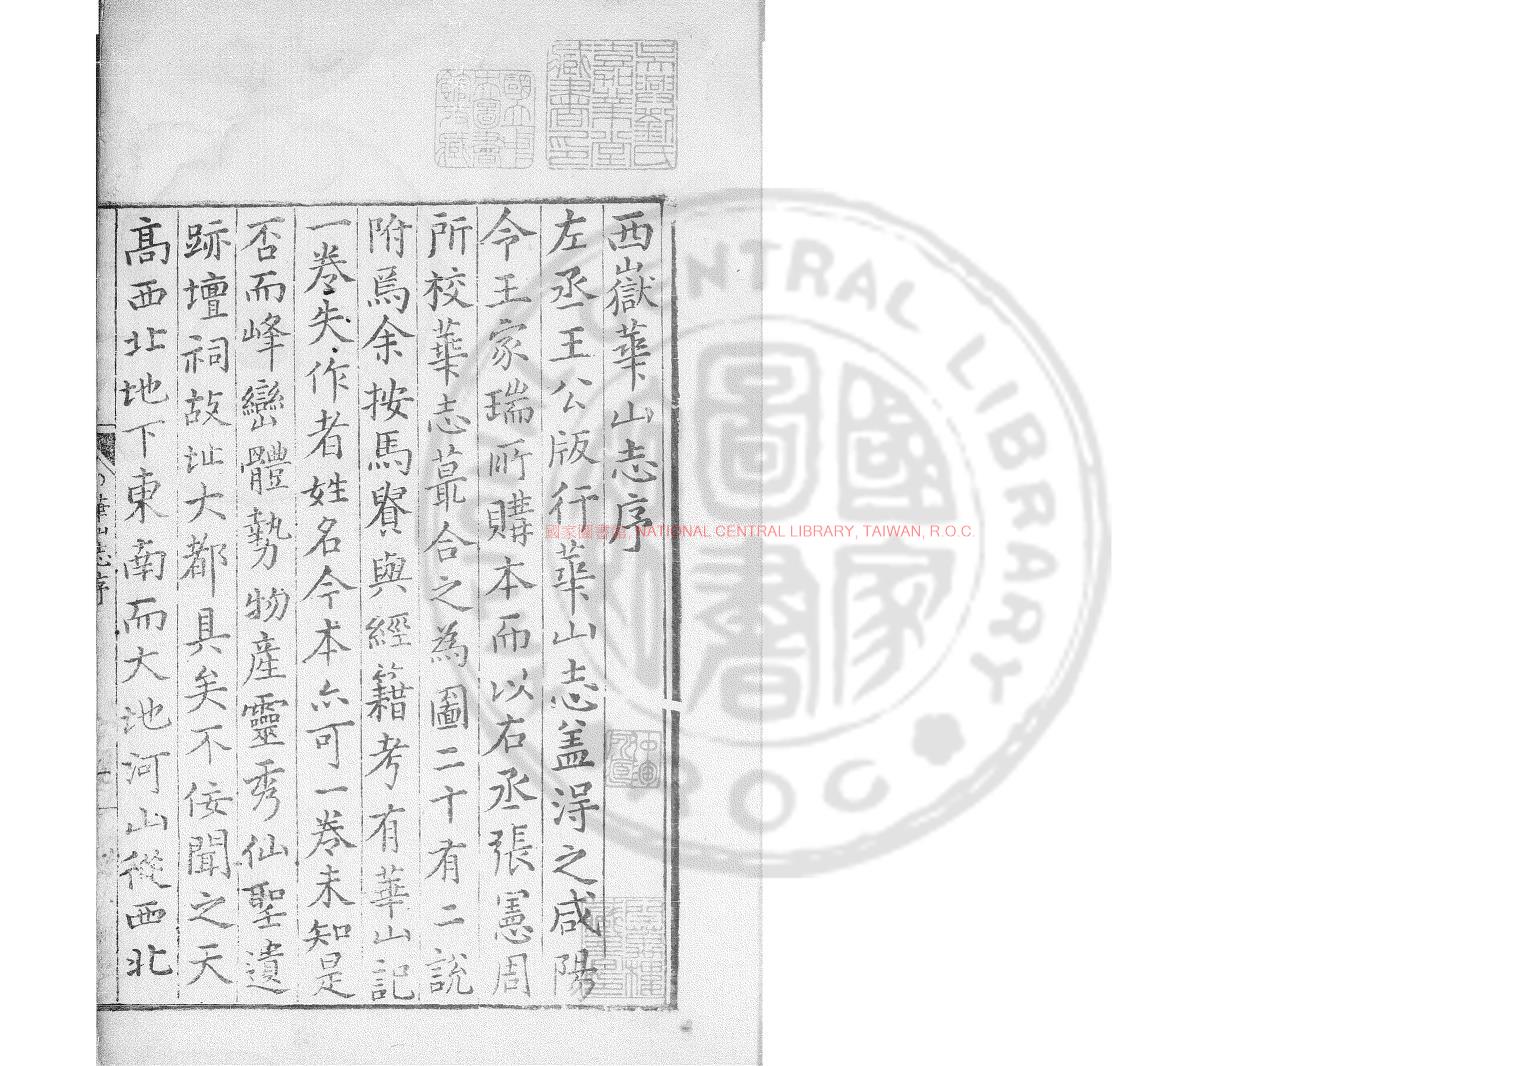 西嶽華山志序
左丞王公版行華山志盖淂之咸陽
令王家瑞所購本而以右丞張憲周
所校華志蕞合之為圖二十有二說
附焉余按馬貴與經籍考有華山記
一卷失作者姓名今本亦可一卷未知是
否而峰巒體勢物產靈秀仙聖遺
跡壇祠故址大都具矣不佞聞之天
髙西北地下東南而大地河山從西北
華山志序
吳興劉氏
嘉業堂
藏書印
國立中
央圖書
館收藏
國家圖書館, NATIONAL CENTRAL LIBRARY, TAIWAN, R.O.C.
CENTRAL LIBRARY
ROC
國家圖書